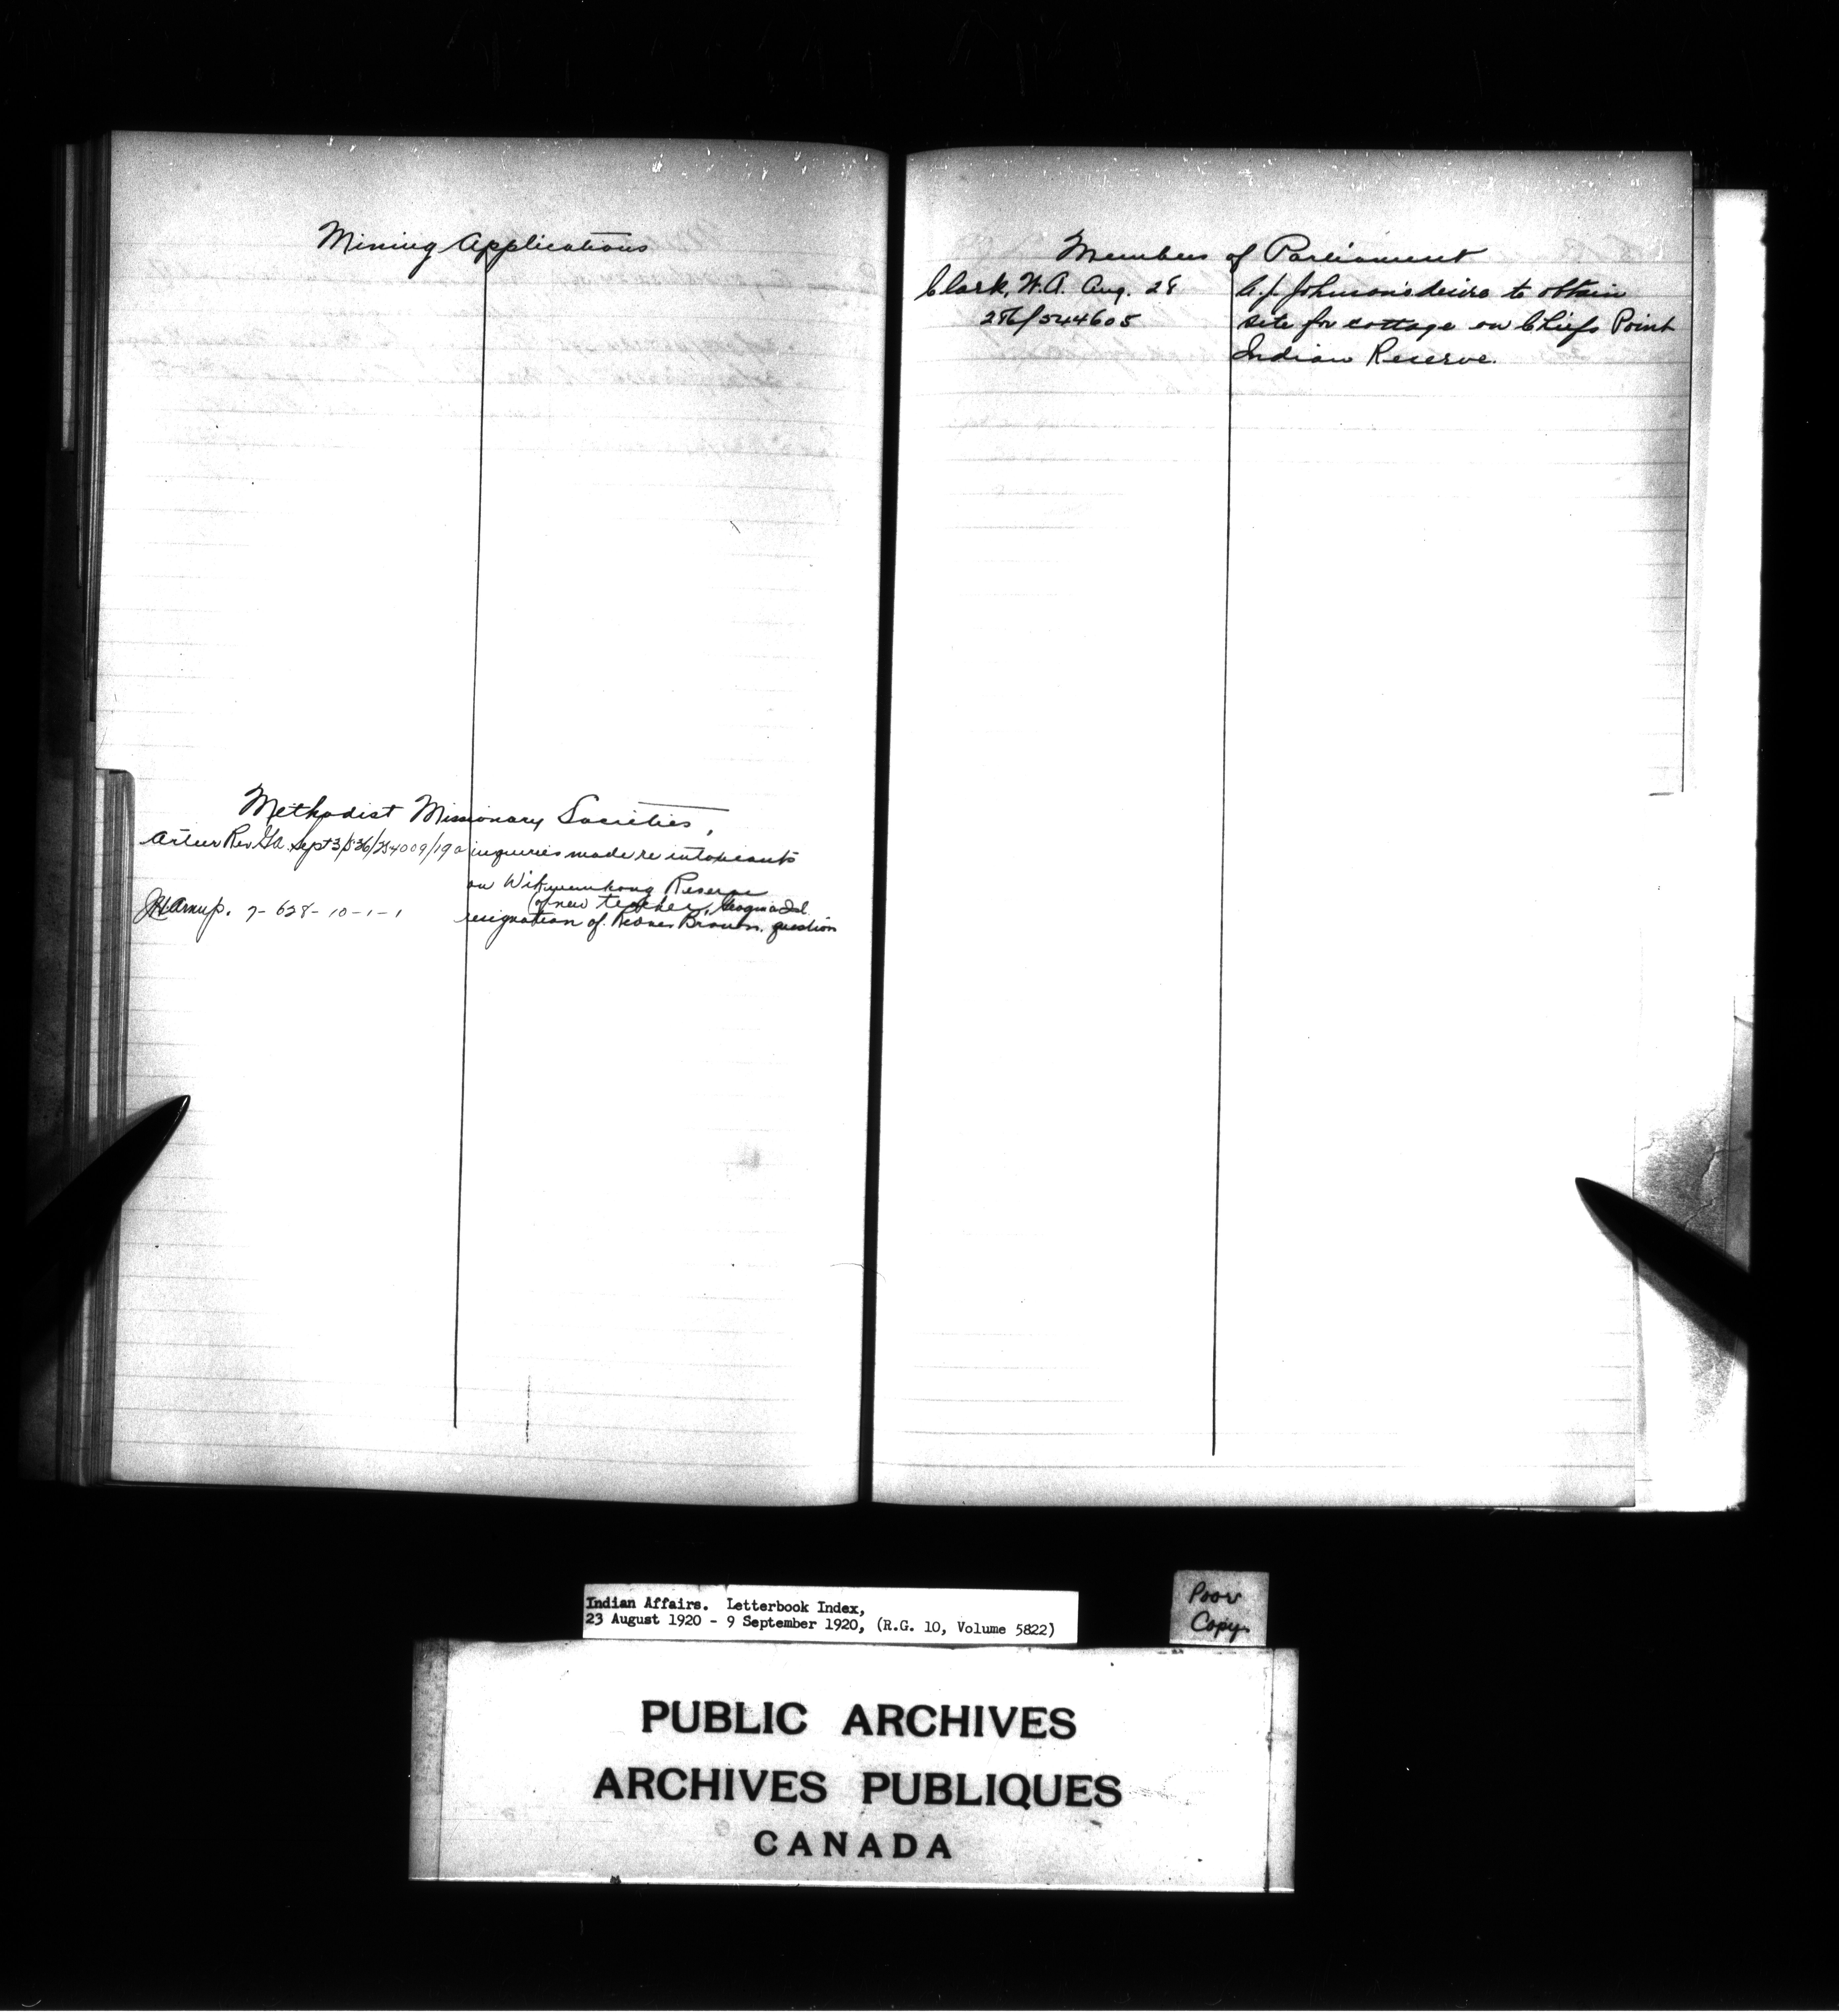 Mining Applications
Methodist Missionary Societies,
Artur Rev Ga. Sept 3/536/254009/19a inquiries made re intoxicants
on Wikwemkong Reserve
of new teacher, Georgina Isl.
J.H. Arnup. 7-628-10-1-1 resignation of Brown. question
Members of Parliament
Clark, W.A. Aug. 28 A.J. Johnson's desire to obtain
286/544605 site for cottage on Chiefs Point
Indian Reserve.
Indian Affairs. Letterbook Index,
23 August 1920 - 9 September 1920, (R.G. 10, Volume 5822)
Poor
Copy
PUBLIC ARCHIVES
ARCHIVES PUBLIQUES
CANADA